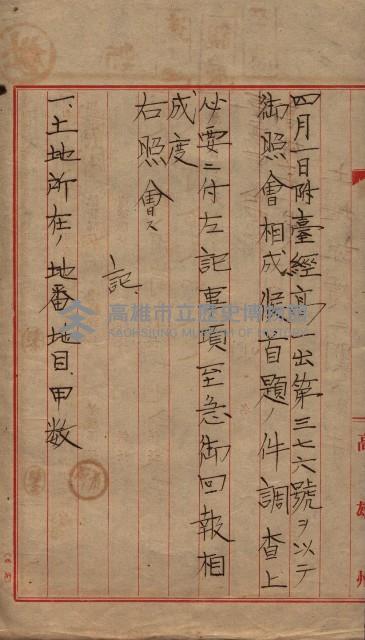 四月一日附臺經高一出第三七六號ヲ以テ
御照會相成候首題ノ件調査上
必要ニ付左記事項至急御回報相
成度
右照會ス
記
一、土地所在ノ地番地目甲数
高雄州
高雄市立歷史博物館
KAOHSIUNG MUSEUM OF HISTORY